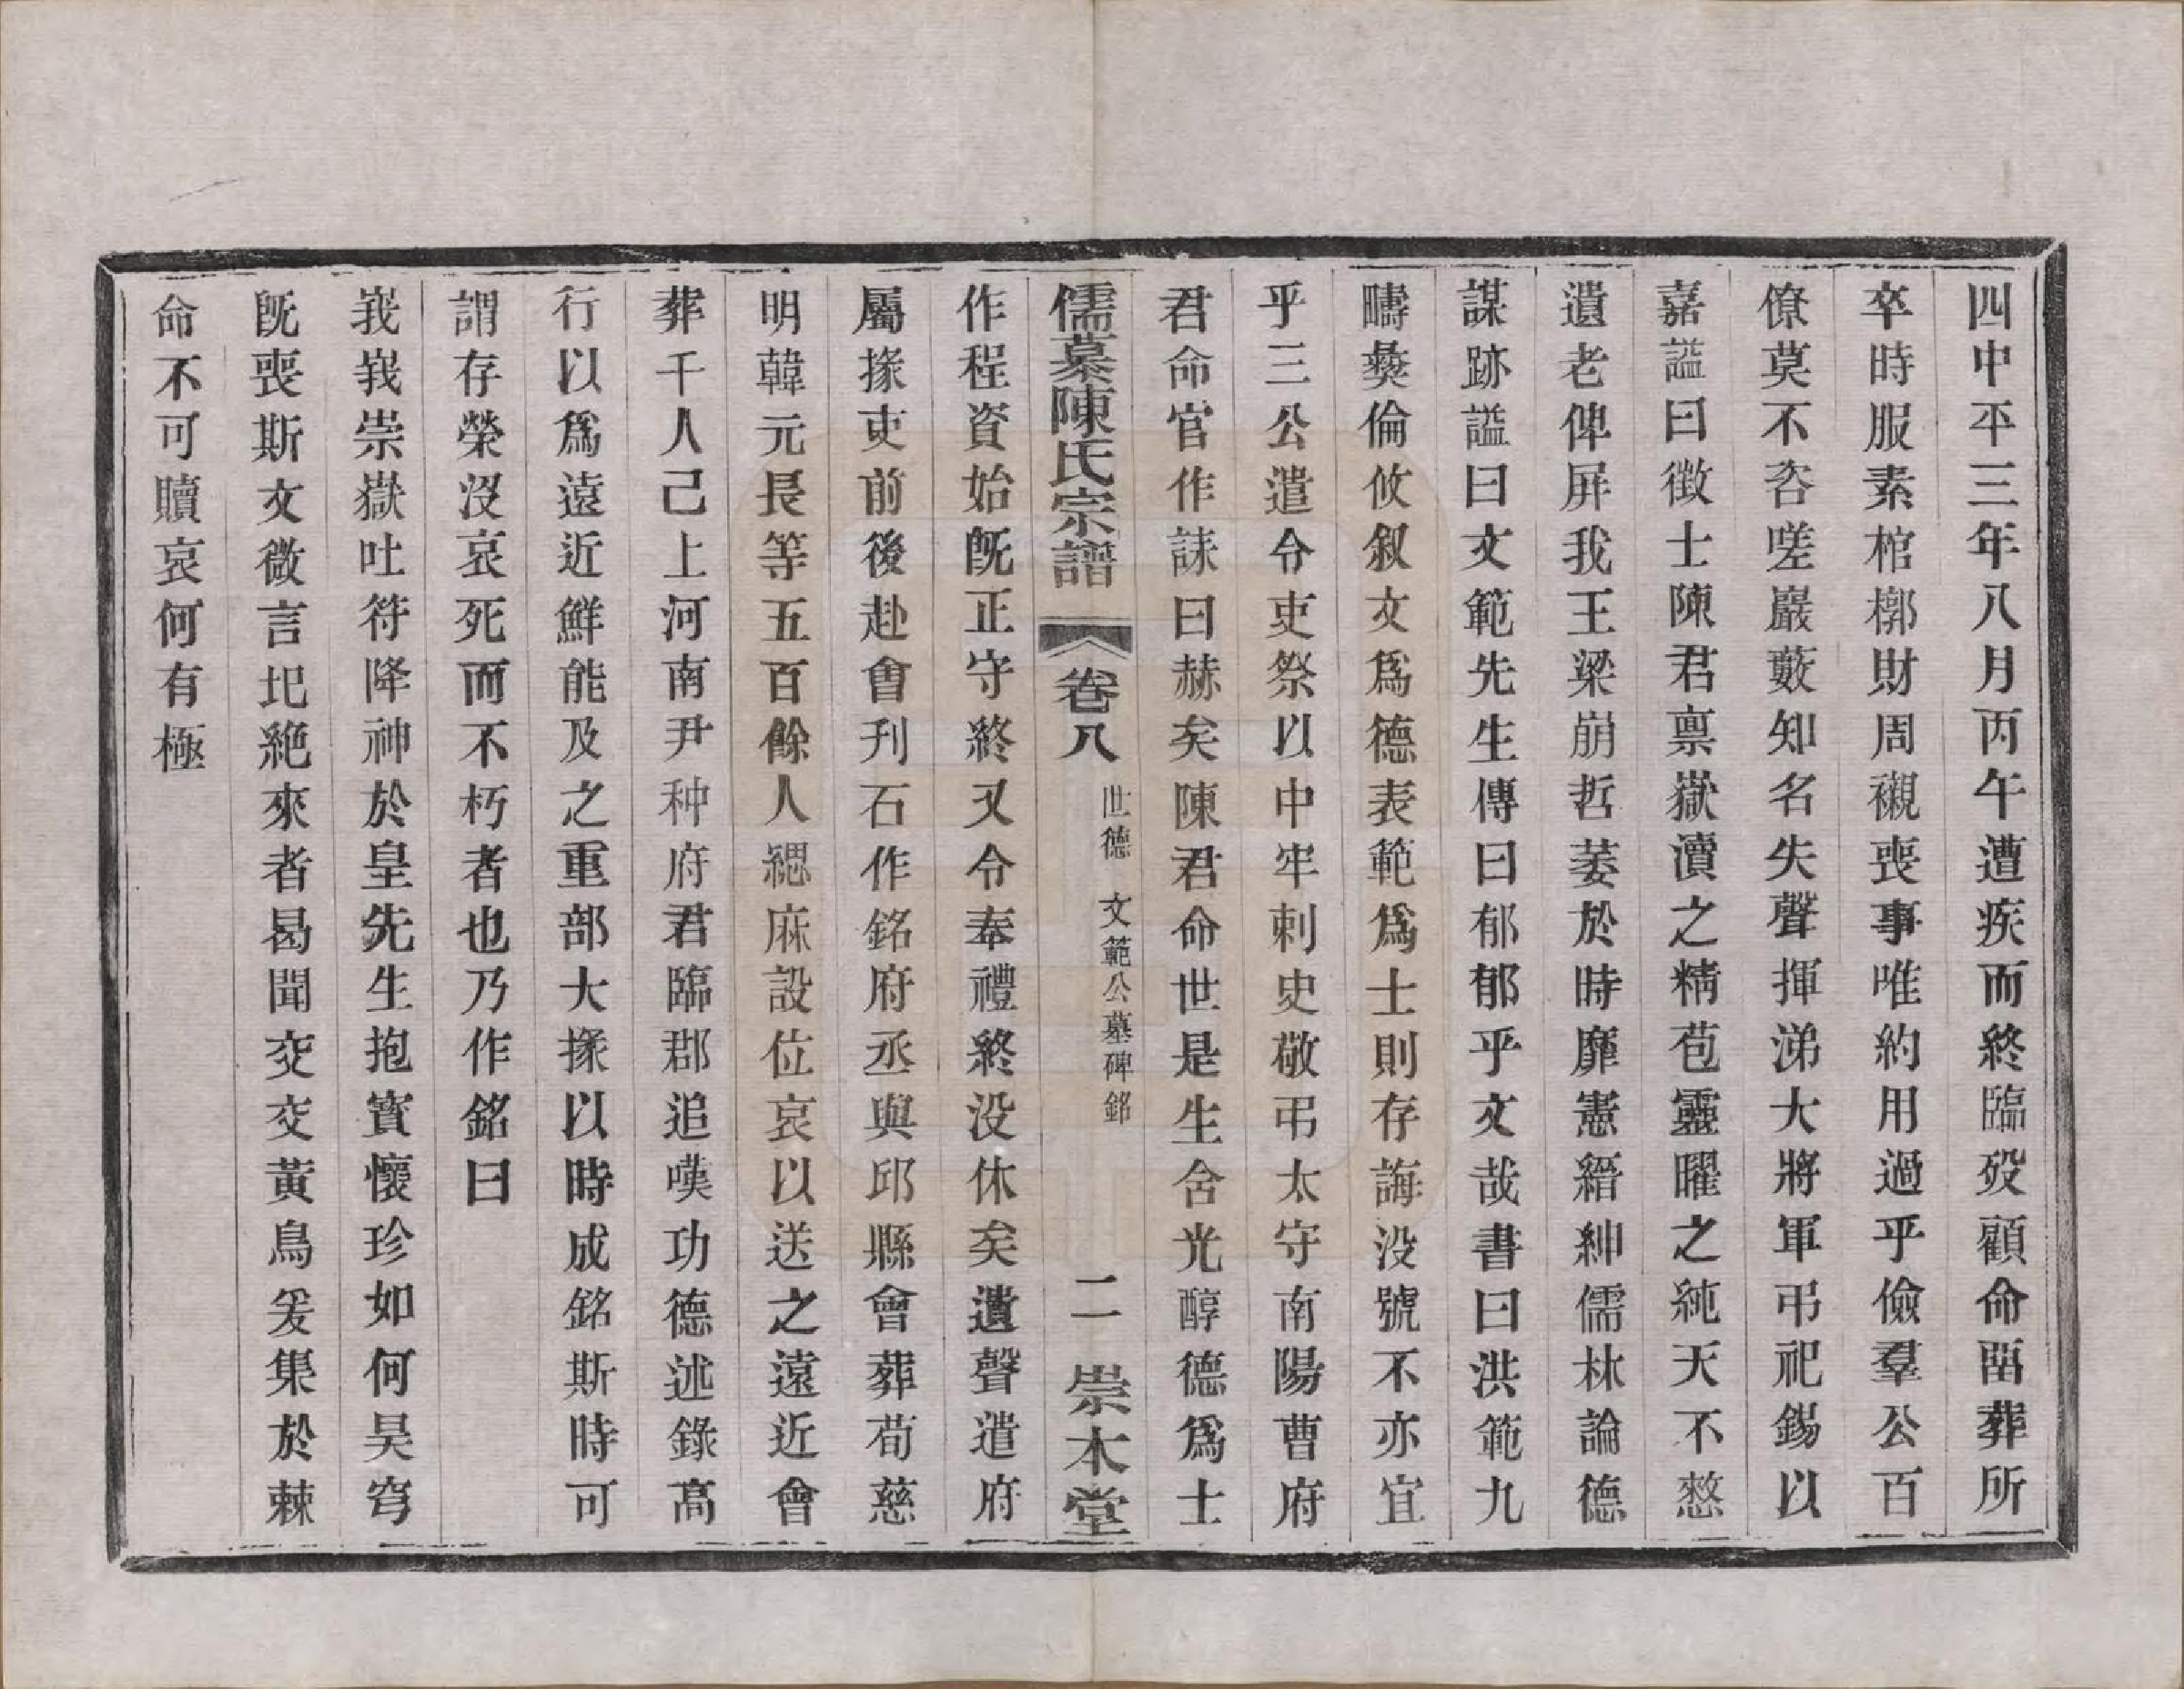 四中平三年八月丙午遭疾而終臨歿顧命畱葬所
卒時服素棺槨財周襯喪事唯約用過乎儉羣公百
僚莫不咨嗟巖藪知名失聲揮涕大將軍弔祀錫以
嘉諡曰徴士陳君禀嶽瀆之精苞靈曜之純天不憖
遺老俾屏我王梁崩哲萎於時靡憲縉紳儒林論德
謀跡諡曰文範先生傳曰郁郁乎文哉書曰洪範九
疇彝倫攸叙文爲德表範爲士則存誨没號不亦宜
乎三公遣令吏祭以中牢刺史敬弔太守南陽曹府
君命官作誄曰赫矣陳君命世是生含光醇德爲士
儒慕陳氏宗譜 卷八 世德 文範公墓碑銘 二 崇本堂
作程資始旣正守終又令奉禮終没休矣遺聲遣府
屬掾吏前後赴會刋石作銘府丞與邱縣會葬荀慈
明韓元長等五百餘人緦麻設位哀以送之遠近會
葬千人己上河南尹种府君臨郡追嘆功德述錄高
行以爲遠近鮮能及之重部大掾以時成銘斯時可
謂存榮没哀死而不朽者也乃作銘曰
峩峩崇嶽吐符降神於皇先生抱寳懷珍如何昊穹
旣喪斯文微言圯絶來者曷聞交交黃鳥爰集於棘
命不可贖哀何有極